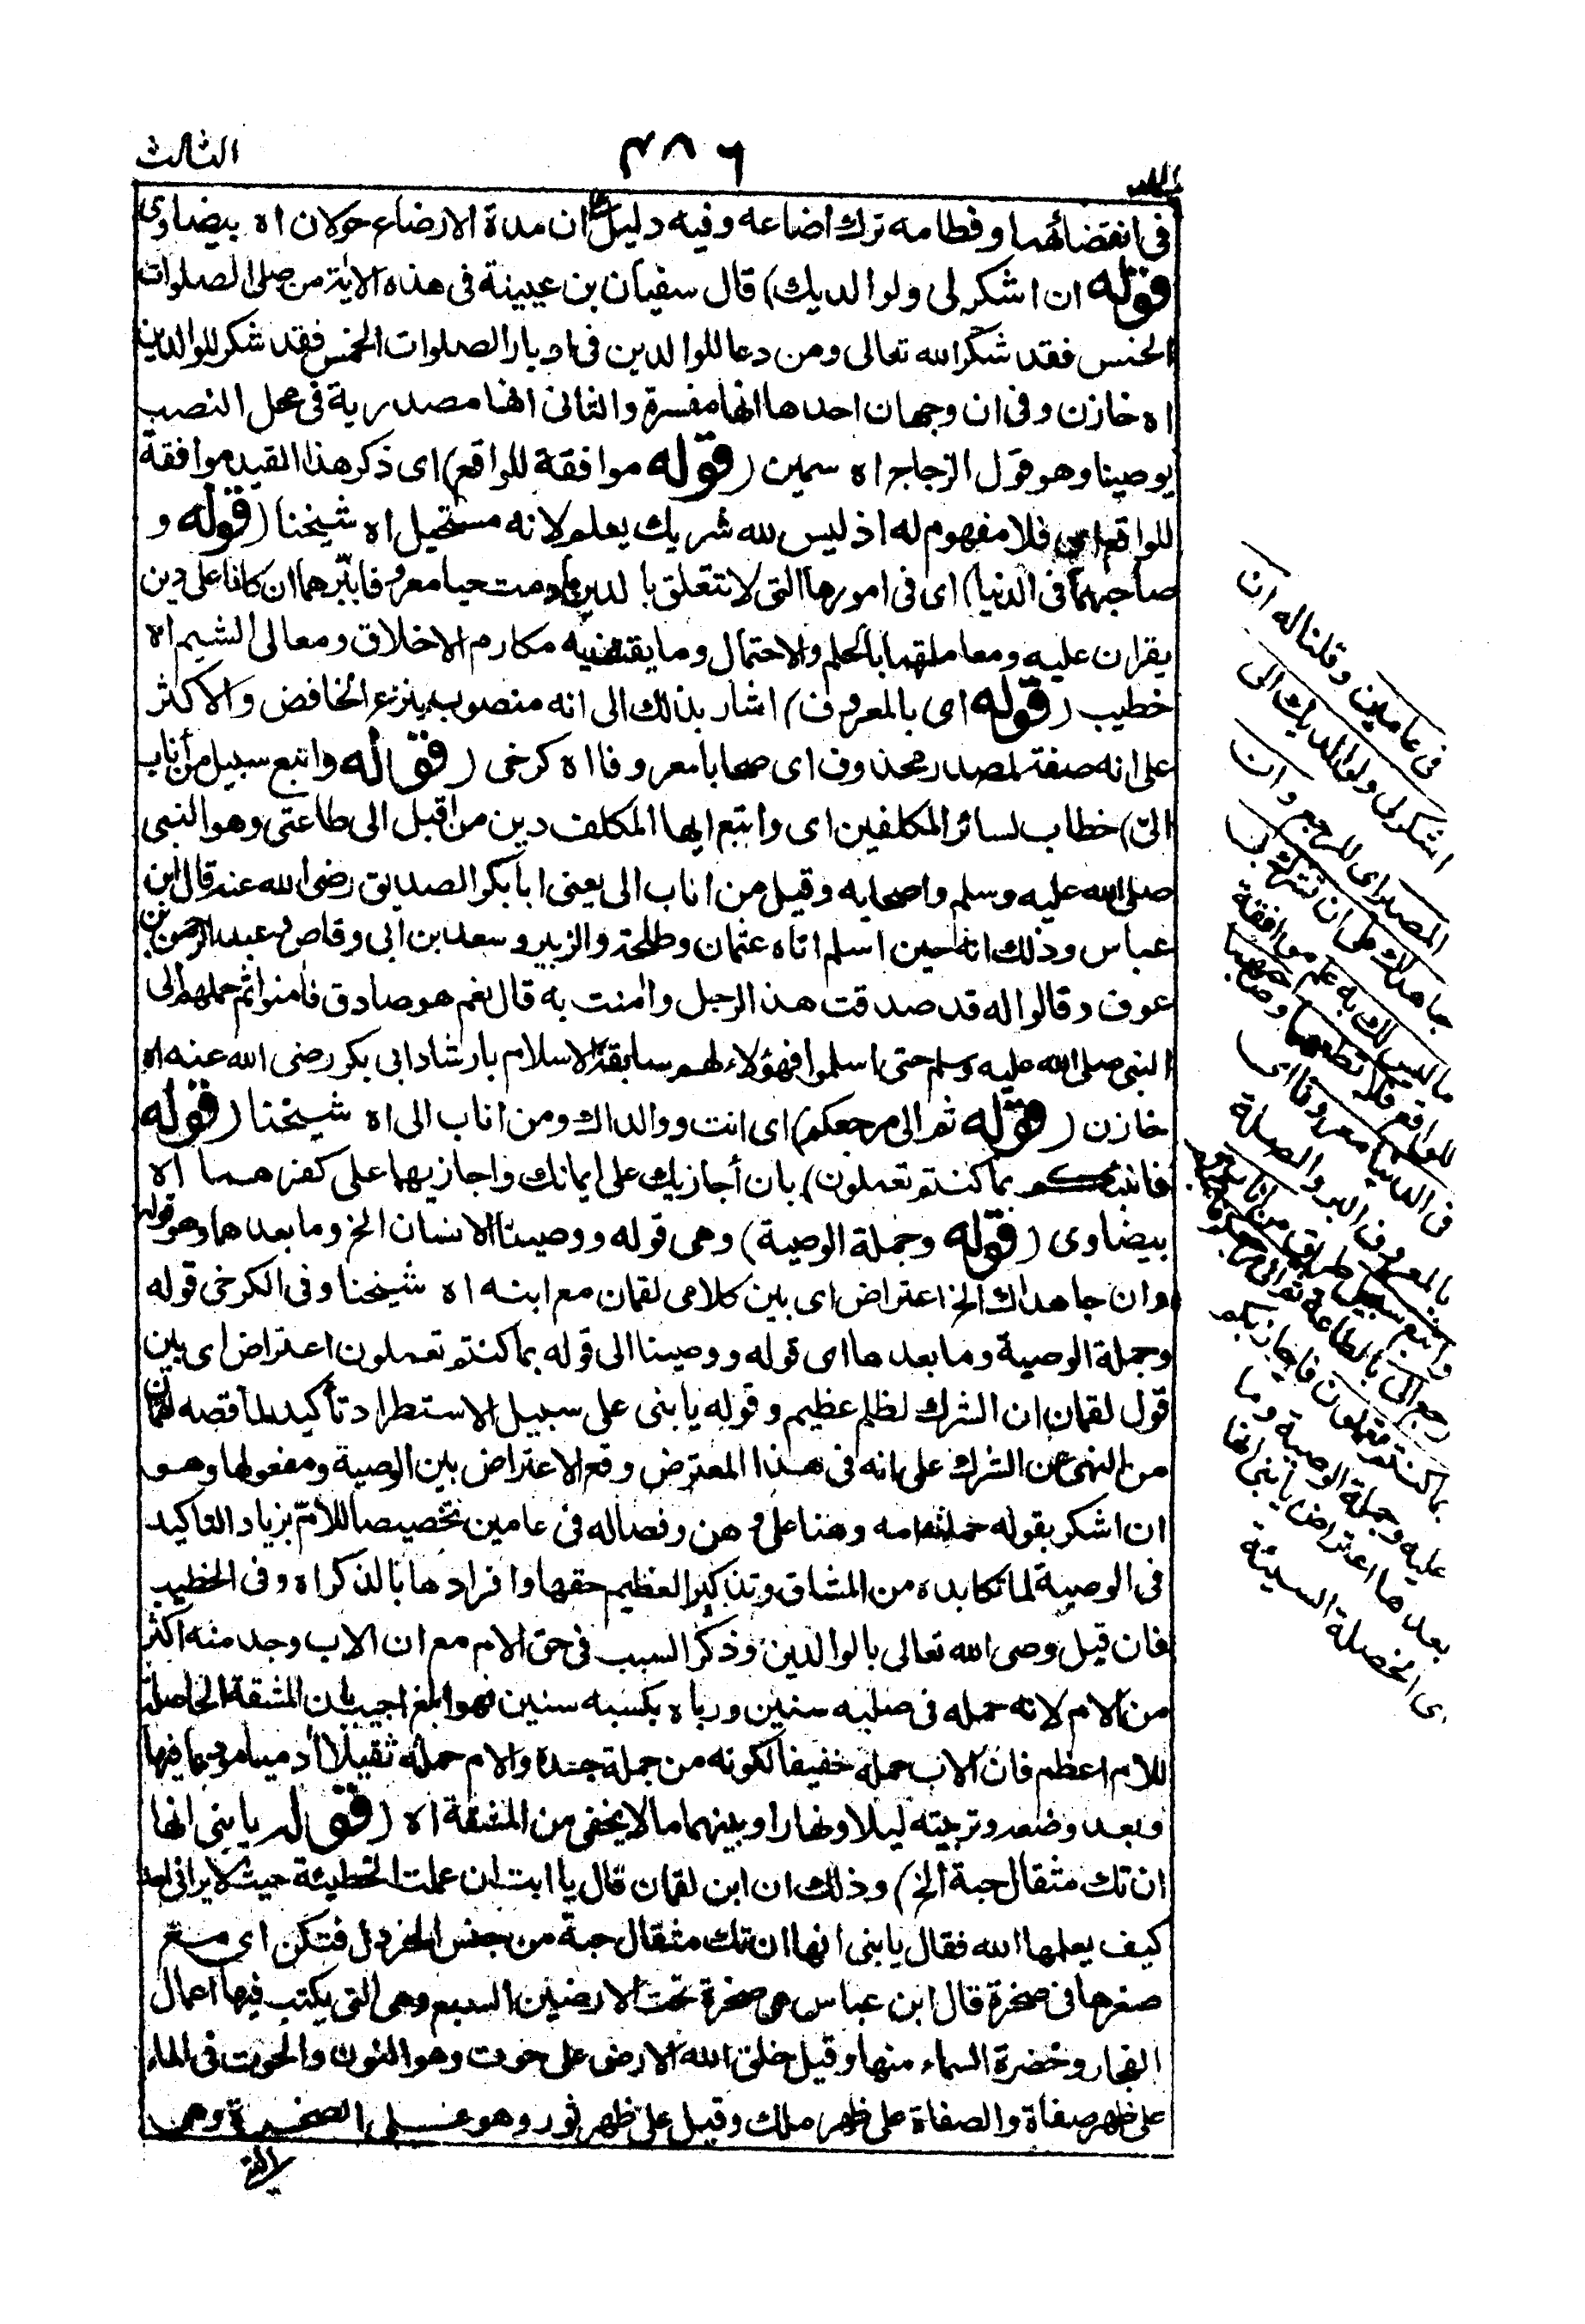 الثالث
٤٨٦
المجلد
فى انقضائهما وفطامه ترك ارضاعه وفيه دليل على ان مدة الارضاع حولان اه بيضاوى
قوله ان اشكر لى ولوالديك) قال سفيان بن عيينة فى هذه الاية من صلى الصلوات
الخمس فقد شكر الله تعالى ومن دعا للوالدين فى ادبار الصلوات الخمس فقد شكر للوالدين
اه خازن وفى ان وجهان احدها انها مفسرة والثانى انها مصدرية فى محل النصب
بوصينا وهو قول الزجاج اه سمين (قوله موافقة للواقع) اى ذكر هذا القيد موافقة
للواقع اى فلا مفهوم له اذ ليس لله شريك يعلم لانه مستحيل اه شيخنا (قوله و
صاحبهما فى الدنيا) اى فى امورها التى لا تتعلق بالدين ما دمت حيا معروفا ببّرهما ان كانا على دين
يقران عليه ومعاملتهما بالحلم والاحتمال وما يقتضيه مكارم الاخلاق ومعالى الشيم اه
خطيب (قوله اى بالمعروف) اشار بذلك الى انه منصوب بنزع الخافض والاكثر
على انه صفة لمصدر محذوف اى صحابا معروفا اه كرخى (قوله واتبع سبيل من أناب
الىّ) خطاب لسائر المكلفين اى واتبع ايها المكلف دين من اقبل الى طاعتى وهو النبى
صلى الله عليه وسلم واصحابه وقيل من اناب الى يعنى ابابكر الصديق رضى الله عنه قال ابن
عباس وذلك انه حين اسلم اتاه عثمان وطلحة والزبير وسعد بن ابى وقاص وعبد الرحمن بن
عوف وقالوا له قد صدقت هذا الرجل وامنت به قال نعم هو صادق فأمنوا ثم حملهم الى
النبى صلى الله عليه وسلم حتى اسلموا فهؤلاء لهم سابقة الاسلام بارشاد ابى بكر رضى الله عنه اه
خازن (قوله ثم الى مرجعكم) اى انت ووالداك ومن اناب الى اه شيخنا (قوله
فانبئكم بما كنتم تعملون) بان أجازيك على ايمانك واجازيهما على كفرهما اه
بيضاوى (قوله وجملة الوصية) وهى قوله ووصينا الانسان الخ وما بعدها وهو قوله
وان جاهداك الخ اعتراض اى بين كلامى لقمان مع ابنه اه شيخنا وفى الكرخى قوله
وجملة الوصية وما بعدها اى قوله ووصينا الى قوله بما كنتم تعملون اعتراض اى بين
قول لقمان ان الشرك لظلم عظيم وقوله يابنى على سبيل الاستطراد تأكيد لما قصه لقمان
من النهى عن الشرك على انه فى هذا المعترض وقع الاعتراض بين الوصية ومفعولها وهو
ان اشكر بقوله حملته امه وهنا على وهن وفصاله فى عامين تخصيصا للام بزيادة التاكيد
فى الوصية لما تكابده من المشاق وتذكير العظيم حقها وافرادها بالذكر اه وفى الخطيب
فان قيل وصى الله تعالى بالوالدين وذكر السبب فى حق الام مع ان الاب وجد منه اكثر
من الام لانه حمله فى صلبه سنين ورباه بكسبه سنين فهو ابلغ اجيب بان المشقة الحاصلة
للام اعظم فان الاب حمله خفيفا لكونه من جملة جسده والام حملته ثقيلا ادميا مودعا فيها
وبعد وضعه وتربيته ليلا ونهارا وبينهما ما لا يخفى من المشقة اه (قوله يابنى انها
ان تك مثقال حبة الخ) وذلك ان ابن لقمان قال يا ابت ان عملت الخطيئة حيث لا يرانى احد
كيف يعلمها الله فقال يابنى انها ان تك مثقال حبة من جنس الخردل فتكن اى مع
صغرها فى صخرة قال ابن عباس هى صخرة تحت الارضين السبع وهى التى يكتب فيها اعمال
الفجار وخضرة السماء منها وقيل خلق الله الارض على حوت وهو النون والحوت فى الماء
على ظهر صفاة والصفاة على ظهر ملك وقيل على ظهر ثور وهو على الصخرة وهى
فى عامين وقلنا له ان
اشكر لى ولوالديك الى
المصير اى المرجع وان
جاهداك على ان تشرك بى
ما ليس لك به علم موافقة
للواقع فلا تطعهما وصاحبهما
فى الدنيا معروفا اى
بالمعروف البر والصلة
واتبع سبيل طريق من اناب
رجع الى بالطاعة ثم الى مرجعكم
بما كنتم تعملون فاجازيكم
عليه وجملة الوصية وما
بعدها اعتراض يابنى انها
اى الخصلة السيئة